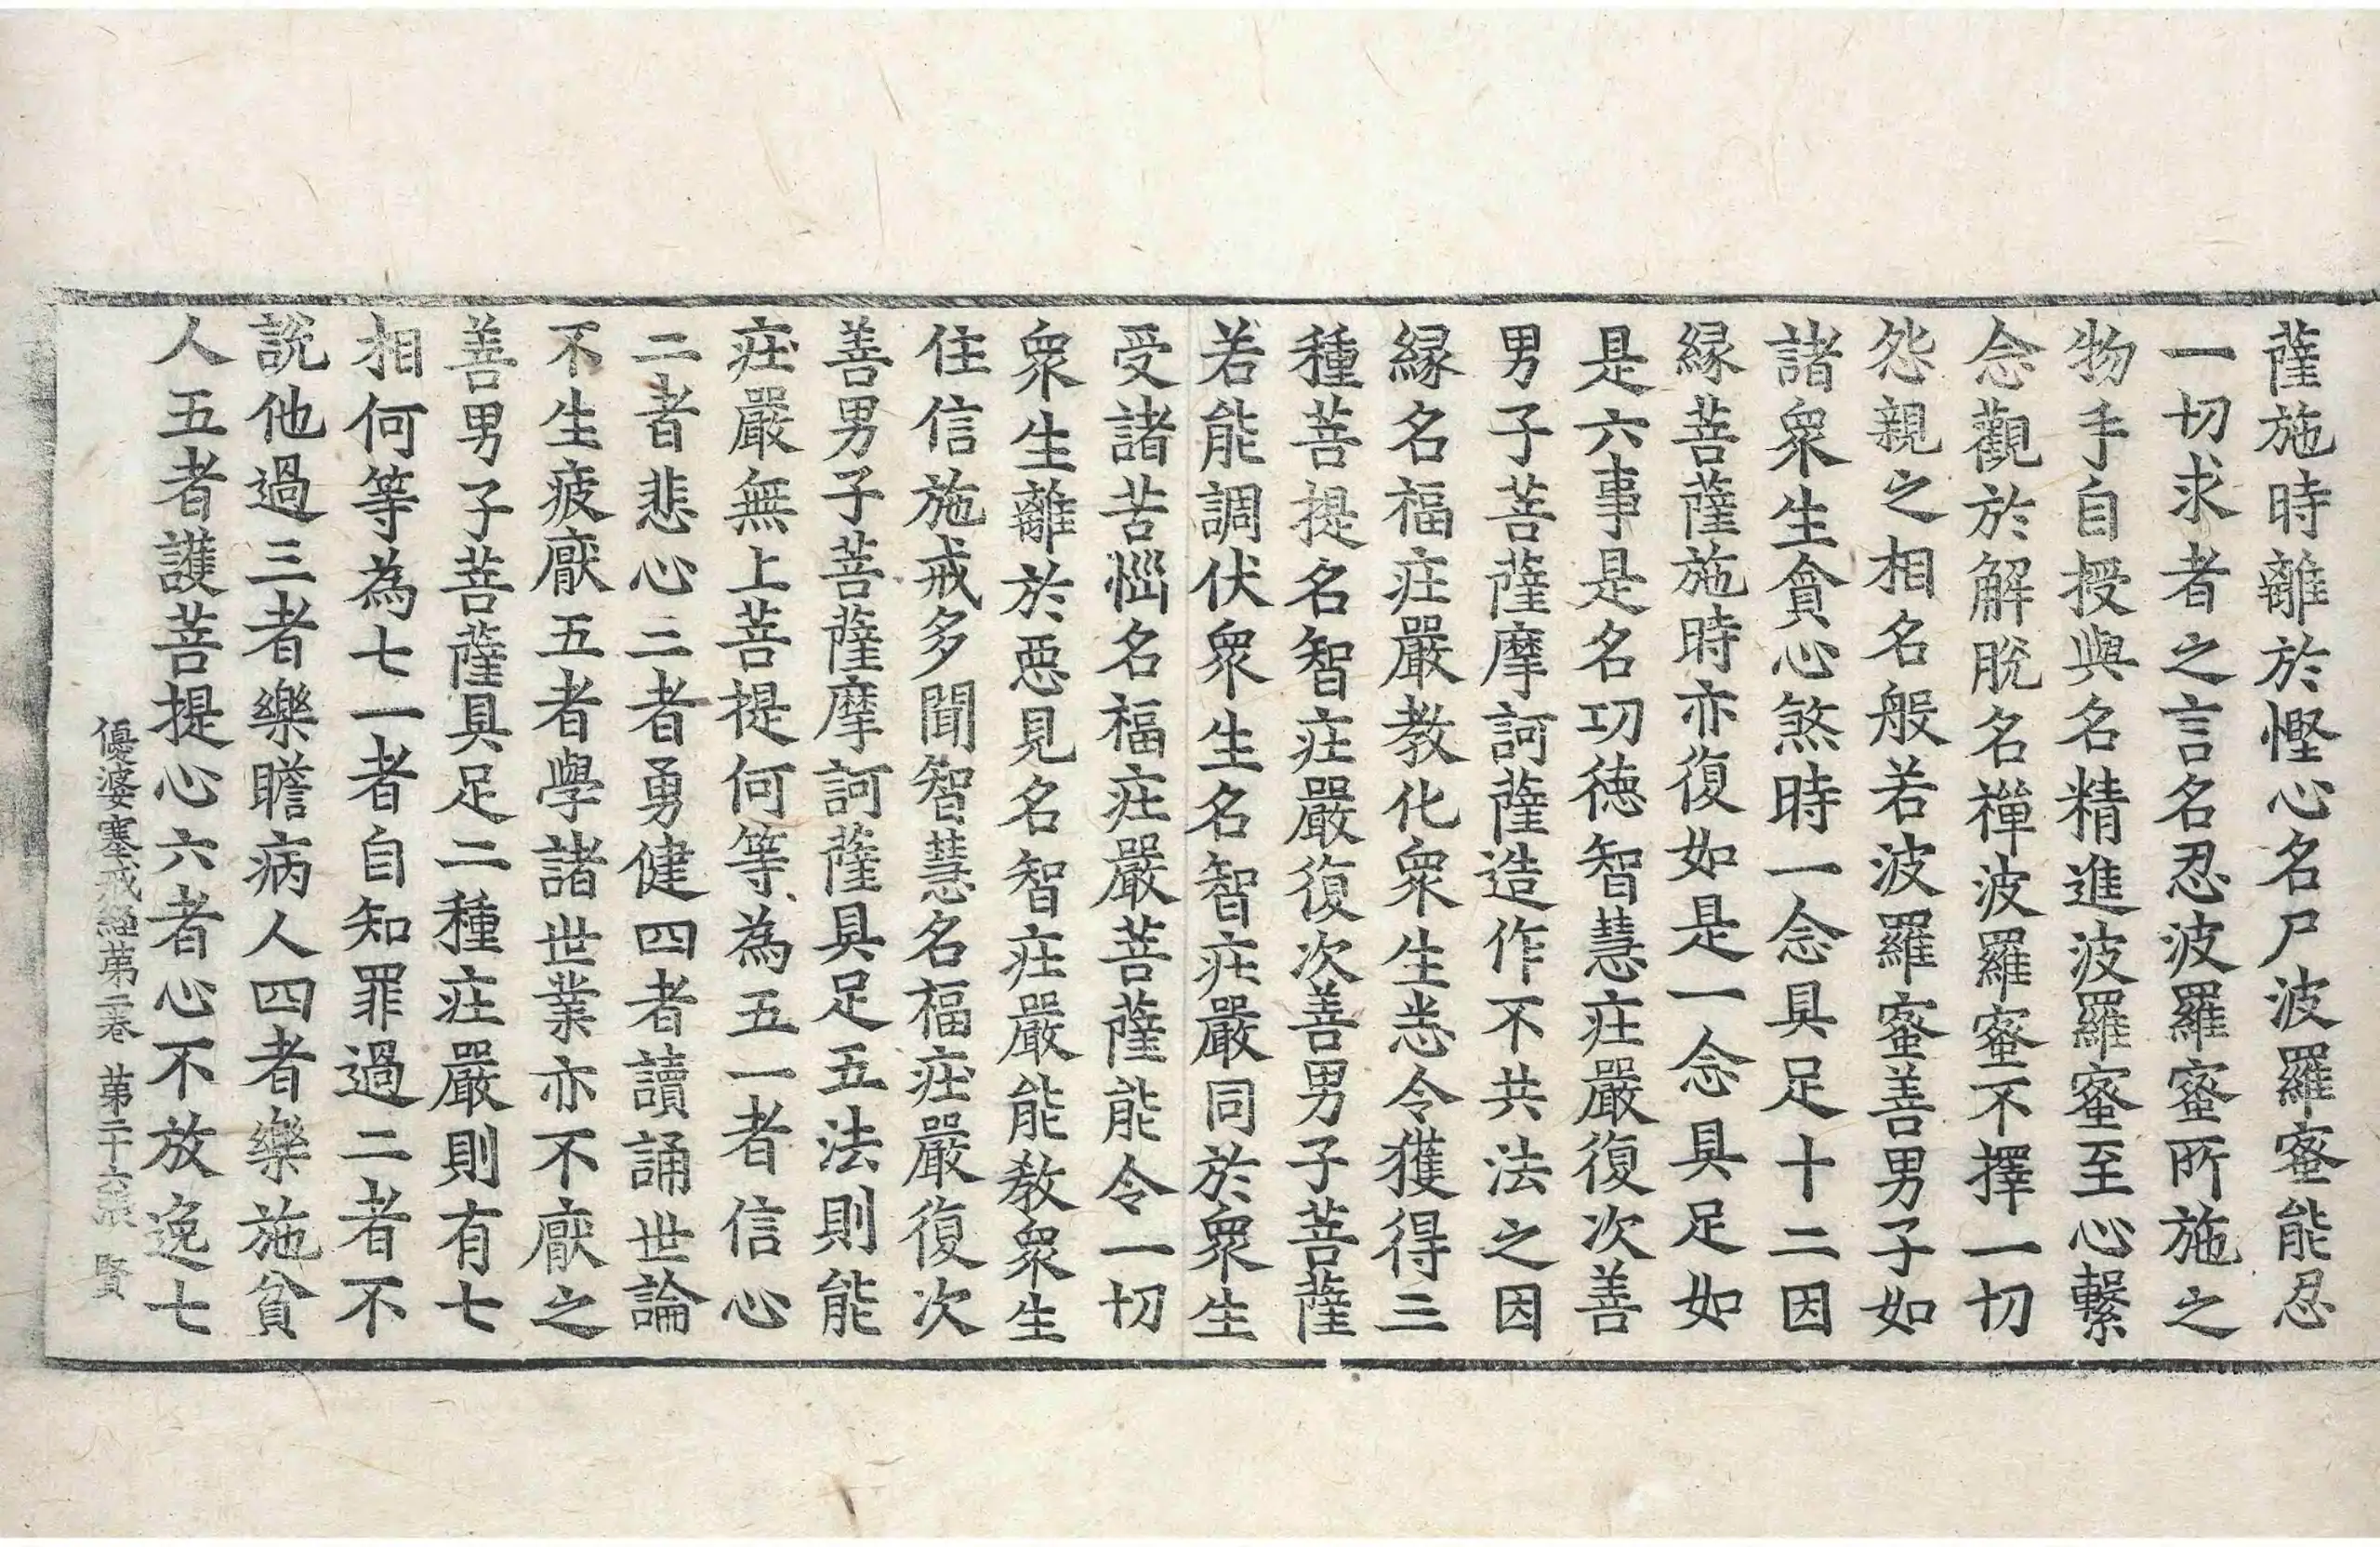 薩施時離於慳心名尸波羅蜜能忍
一切求者之言名忍波羅蜜所施之
物手自授與名精進波羅蜜至心繫
念觀於解脫名禪波羅蜜不擇一切
怨親之相名般若波羅蜜善男子如
諸衆生貪心煞時一念具足十二因
縁菩薩施時亦復如是一念具足如
是六事是名功徳智慧庄嚴復次善
男子菩薩摩訶薩造作不共法之因
縁名福庄嚴教化衆生悉令獲得三
種菩提名智庄嚴復次善男子菩薩
若能調伏衆生名智庄嚴同於衆生
受諸苦惱名福庄嚴菩薩能令一切
衆生離於惡見名智庄嚴能教衆生
住信施戒多聞智慧名福庄嚴復次
善男子菩薩摩訶薩具足五法則能
庄嚴無上菩提何等為五一者信心
二者悲心三者勇健四者讀誦世論
不生疲厭五者學諸世業亦不厭之
善男子菩薩具足二種庄嚴則有七
相何等為七一者自知罪過二者不
說他過三者樂瞻病人四者樂施貧
人五者護菩提心六者心不放逸七
優婆塞戒經第二卷 第二十六張 賢